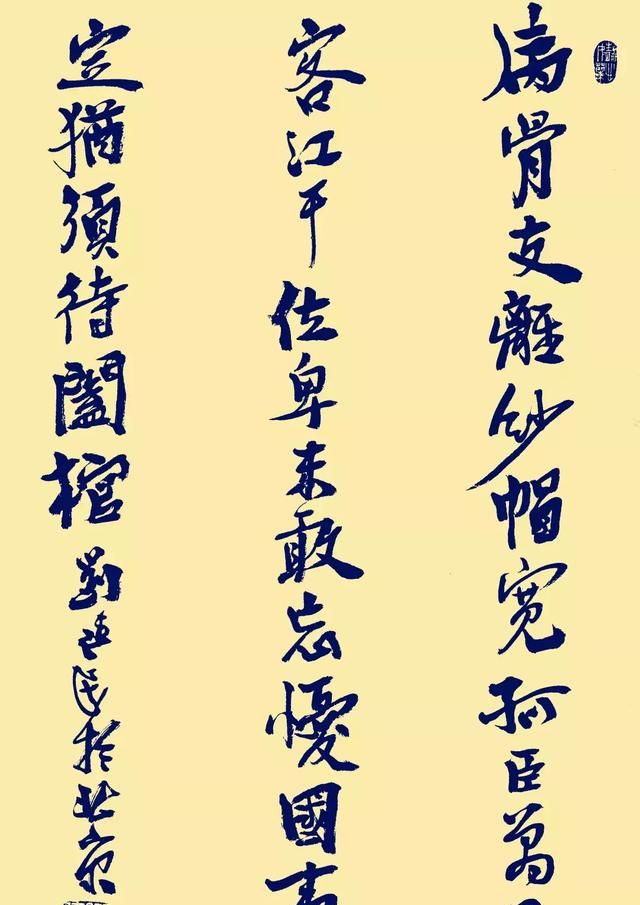 病骨支離紗帽寬孤臣萬
客江干位卑未敢忘憂國事
定猶須待闔棺 劉民於北京